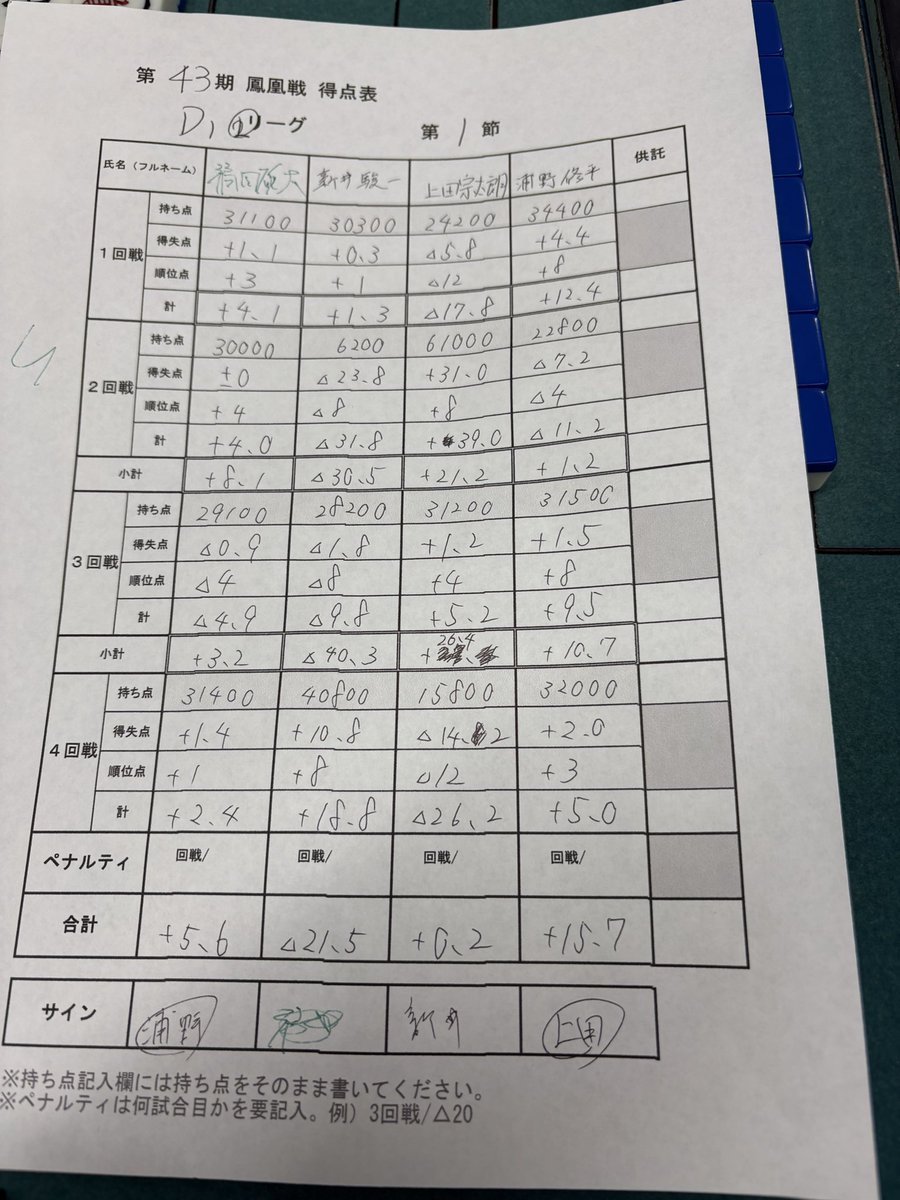 第 43 期 鳳凰戦 得点表
D1 ②リーグ 第 1 節
氏名（フルネーム） 新井駿一 上田宗太朗 浦野修平 供託
1回戦
持ち点 31100 30300 24200 34400
得失点 +1、1 +0、3 △5、8 +4、4
順位点 +3 +1 △12 +8
計 +4、1 +1、3 △17、8 +12、4
2回戦
持ち点 30000 6200 61000 22800
得失点 ±0 △23、8 +31、0 △7、2
順位点 +4 △8 +8 △4
計 +4、0 △31、8 +39、0 △11、2
小計 +8、1 △30、5 +21、2 +1、2
3回戦
持ち点 29100 28200 31200 31500
得失点 △0、9 △1、8 +1、2 +1、5
順位点 △4 △8 +4 +8
計 △4、9 △9、8 +5、2 +9、5
小計 +3、2 △40、3 +26、4 +10、7
4回戦
持ち点 31400 40800 15800 32000
得失点 +1、4 +10、8 △14、2 +2、0
順位点 +1 +8 △12 +3
計 +2、4 +18、8 △26、2 +5、0
ペナルティ 回戦/ 回戦/ 回戦/ 回戦/
合計 +5、6 △21、5 +0、2 +15、7
サイン 浦野 新井 上田
※持ち点記入欄には持ち点をそのまま書いてください。
※ペナルティは何試合目かを要記入。例）3回戦/△20